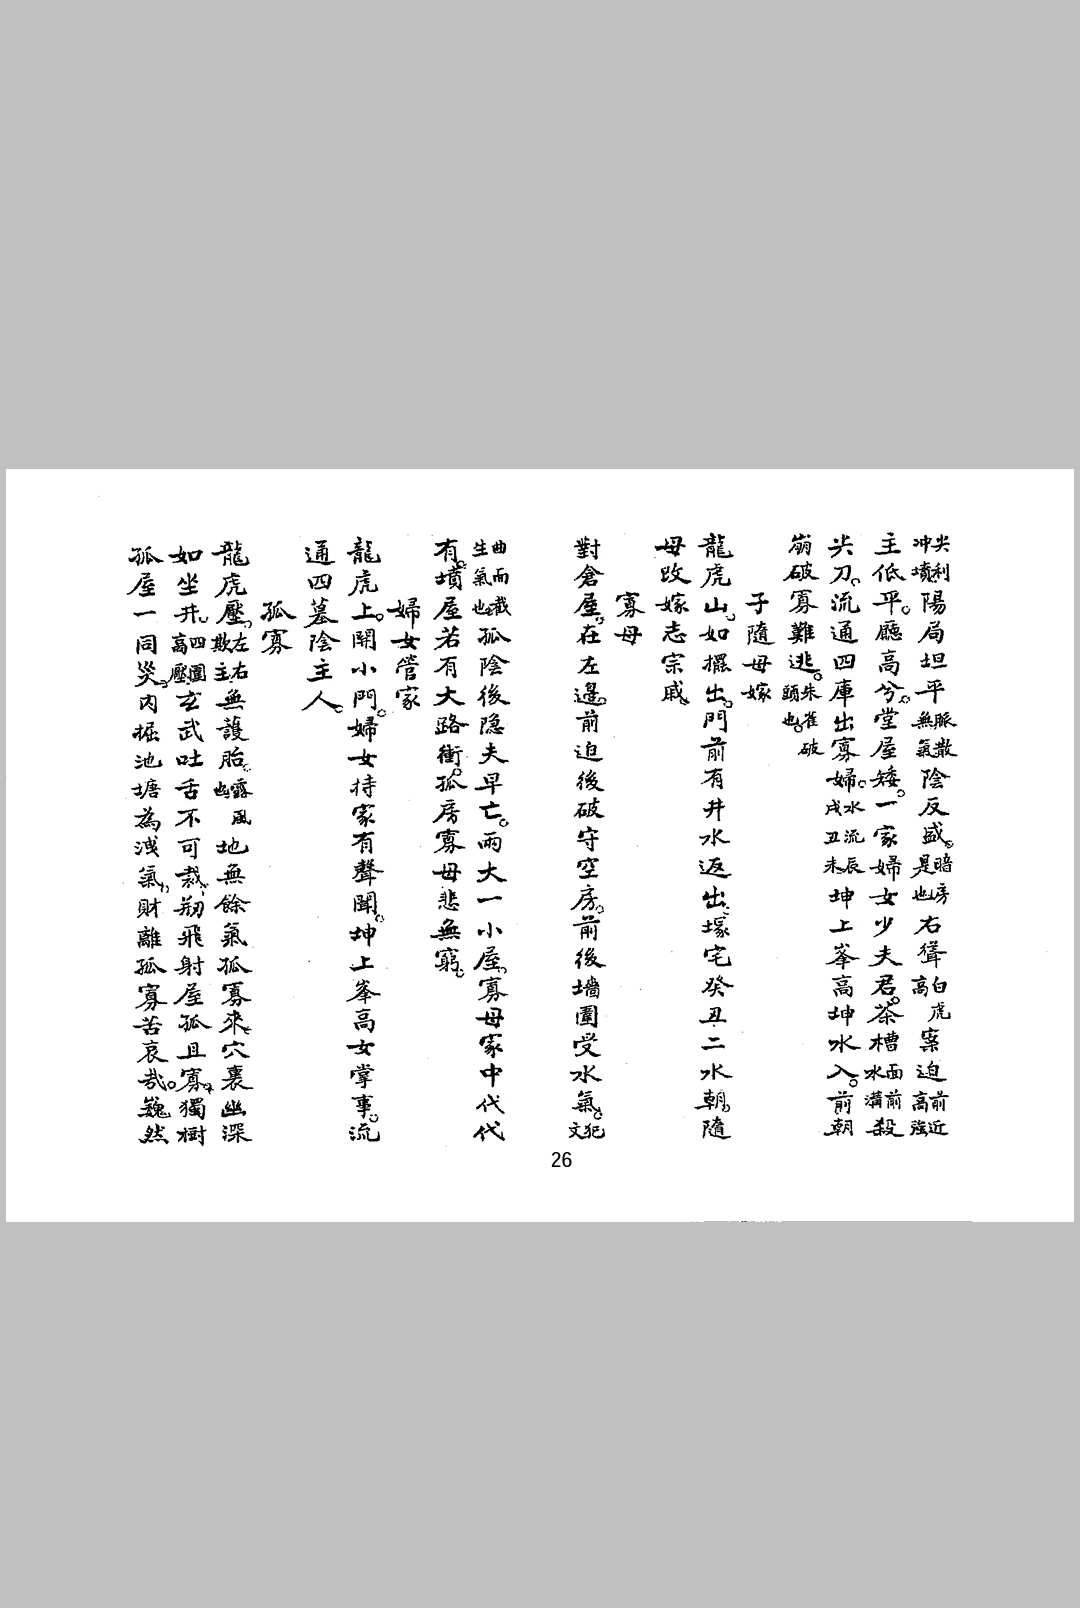 尖利冲墳陽局坦平脈散無氣陰反盛暗房是也右聳白虎高案迫前近高強
主低平廳高兮堂屋矮一家婦女少夫君茶槽面前水溝殺
尖刀流通四庫出寡婦水流辰戌丑未坤上峯高坤水入前朝
崩破寡難逃朱雀破頭也
子隨母嫁
龍虎山如擺出門前有井水返出塚宅癸丑二水朝隨
母改嫁志宗戚
寡母
對倉屋在左邊前迫後破守空房前後墻圍受水氣犯文
曲而戢生氣也孤陰後隐夫早亡兩大一小屋寡母家中代代
有墳屋若有大路衝孤房寡母悲無窮
婦女管家
龍虎上開小門婦女持家有聲聞坤上峯高女掌事流
通四墓陰主人
孤寡
龍虎壓左右欺主無護胎露風也地無餘氣孤寡來穴裏幽深
如坐井四圍高壓玄武吐舌不可裁刱飛射屋孤且寡獨樹
孤屋一同災內掘池塘為洩氣財離孤寡苦哀哉巍然
26